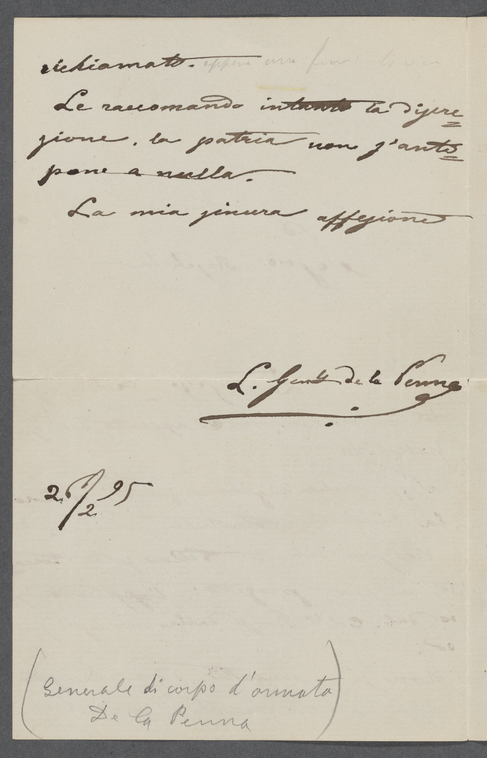 richiamato.
Le raccomando intanto la discre=
zione. la patria non s'anto=
pone a nulla.
La mia sincera affezione
L. Genle de la Penne
26/2 95
(Generale di corpo d'armata
De la Penna)